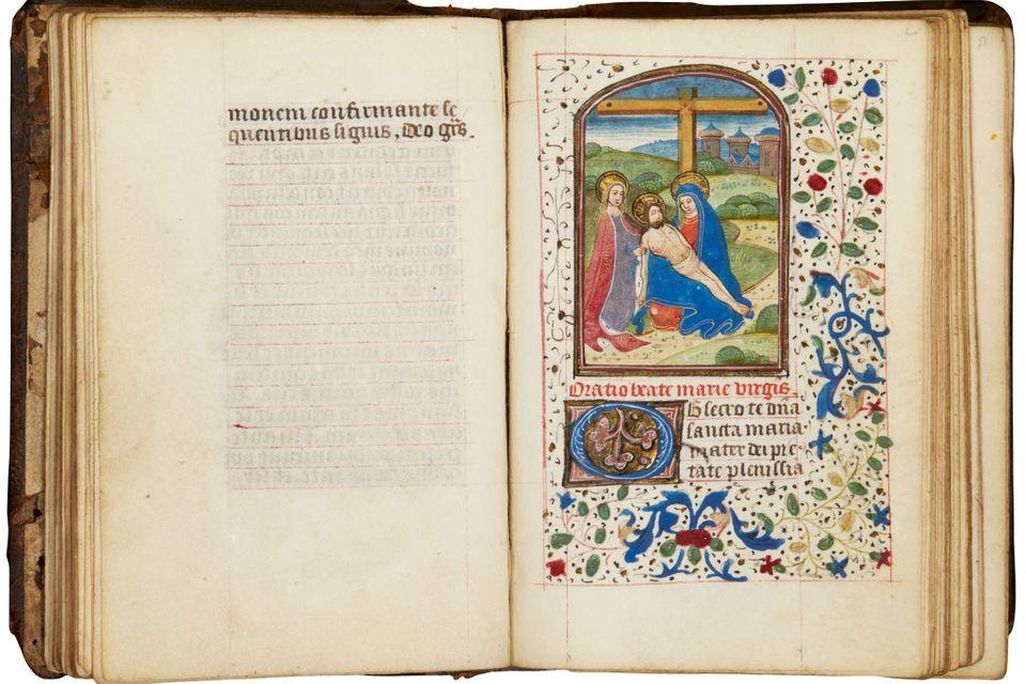 monem confirmante se
quentibus signis, deo grs.
Oratio beate marie virgis.
Obsecro te dna
sancta maria
mater dei pie
tate plenissia